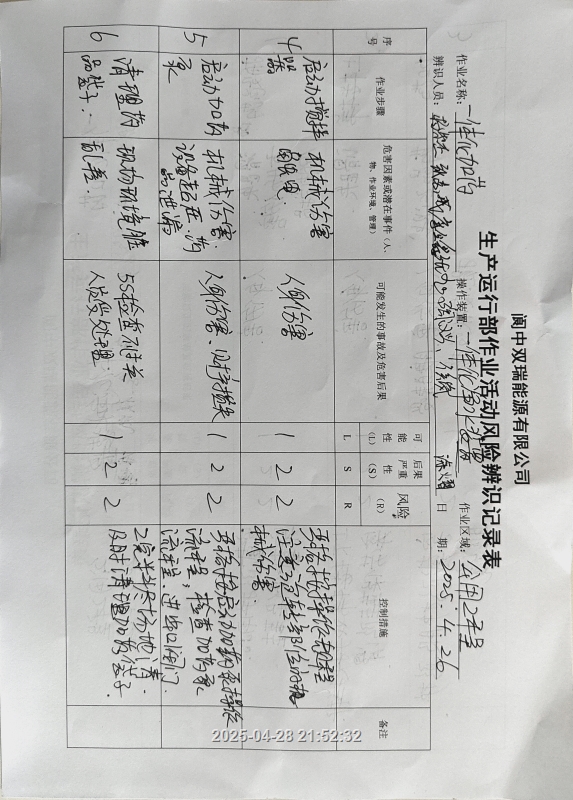 阆中双瑞能源有限公司
生产运行部作业活动风险辨识记录表
作业名称: 一体化加药 操作装置: 一体化 作业区域: 公用工程
辨识人员: 日 期: 2025.4.26
序号 作业步骤 危害因素或潜在事件(人、物、作业环境、管理) 可能发生的事故及危害后果 可能性(L) 后果严重性(S) 风险(R) 控制措施 备注
L S R
4 启动搅拌器 机械伤害 触电 人身伤害 1 2 2 严格按操作规程 注意 机械伤害
5 启动加药泵 机械伤害 设备超压、药品泄漏 人身伤害、财产损失 1 2 2 严格按启动加药泵操作流程,检查加药泵流程、进出口阀门
6 清理药品袋子. 现场环境脏乱差. 5S检查不过关 人员受处理. 1 2 2 工完料尽场地清. 及时清理加药袋子.
2025-04-28 21:52:32